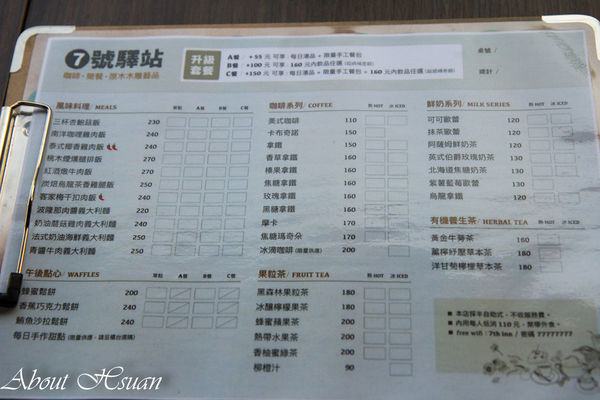 7號驛站
咖啡・簡餐・原木木雕藝品
升級套餐
A餐 / +55 元 可享 : 每日湯品 + 限量手工餐包
B餐 / +100 元 可享 : 160 元內飲品任選
C餐 / +150 元 可享 : 每日湯品 + 限量手工餐包 + 160 元內飲品任選
桌號 /
總計 /
風味料理/ MEALS 單點 A餐 B餐 C餐
三杯杏鮑菇飯 230
南洋咖哩雞肉飯 240
泰式椰香雞肉飯 240
桃木煙燻腿排飯 240
紅酒燉牛肉飯 240
炭焙烏龍茶香雞腿飯 250
客家梅干扣肉飯 240
波隆那肉醬義大利麵 240
奶油蘑菇雞肉義大利麵 240
法式奶油海鮮義大利麵 250
青醬牛肉義大利麵 250
午後點心/ WAFFLES 單點 A餐 B餐 C餐
蜂蜜鬆餅 200
香蕉巧克力鬆餅 240
鮪魚沙拉鬆餅 240
每日手作甜點 (限量供應，請至櫃台選購)
咖啡系列/ COFFEE 熱 HOT 冰 ICED
美式咖啡 110
卡布奇諾 150
拿鐵 150
香草拿鐵 160
榛果拿鐵 160
焦糖拿鐵 160
玫瑰拿鐵 160
黑糖拿鐵 160
摩卡 170
焦糖瑪奇朵 170
冰滴咖啡 (限量供應) 200
果粒茶/ FRUIT TEA 熱 HOT 冰 ICED
黑森林果粒茶 180
冰釀檸檬果茶 180
蜂蜜蘋果茶 200
熱帶水果茶 200
香柚蜜綠茶 200
柳橙汁 90
鮮奶系列/ MILK SERIES 熱 HOT 冰 ICED
可可歐蕾 120
抹茶歐蕾 120
阿薩姆鮮奶茶 120
英式伯爵玫瑰奶茶 130
北海道焦糖奶茶 130
紫薯藍莓歐蕾 130
烏龍拿鐵 130
有機養生茶/ HERBAL TEA 熱 HOT 冰 ICED
黃金牛蒡茶 160
薰檸紓壓草本茶 160
洋甘菊檸檬草本茶 180
■ 本店採半自助式，不收服務費。
■ 內用每人低消 110 元，禁帶外食。
■ free wifi : 7th inn / 密碼 77777777
About Hsuan